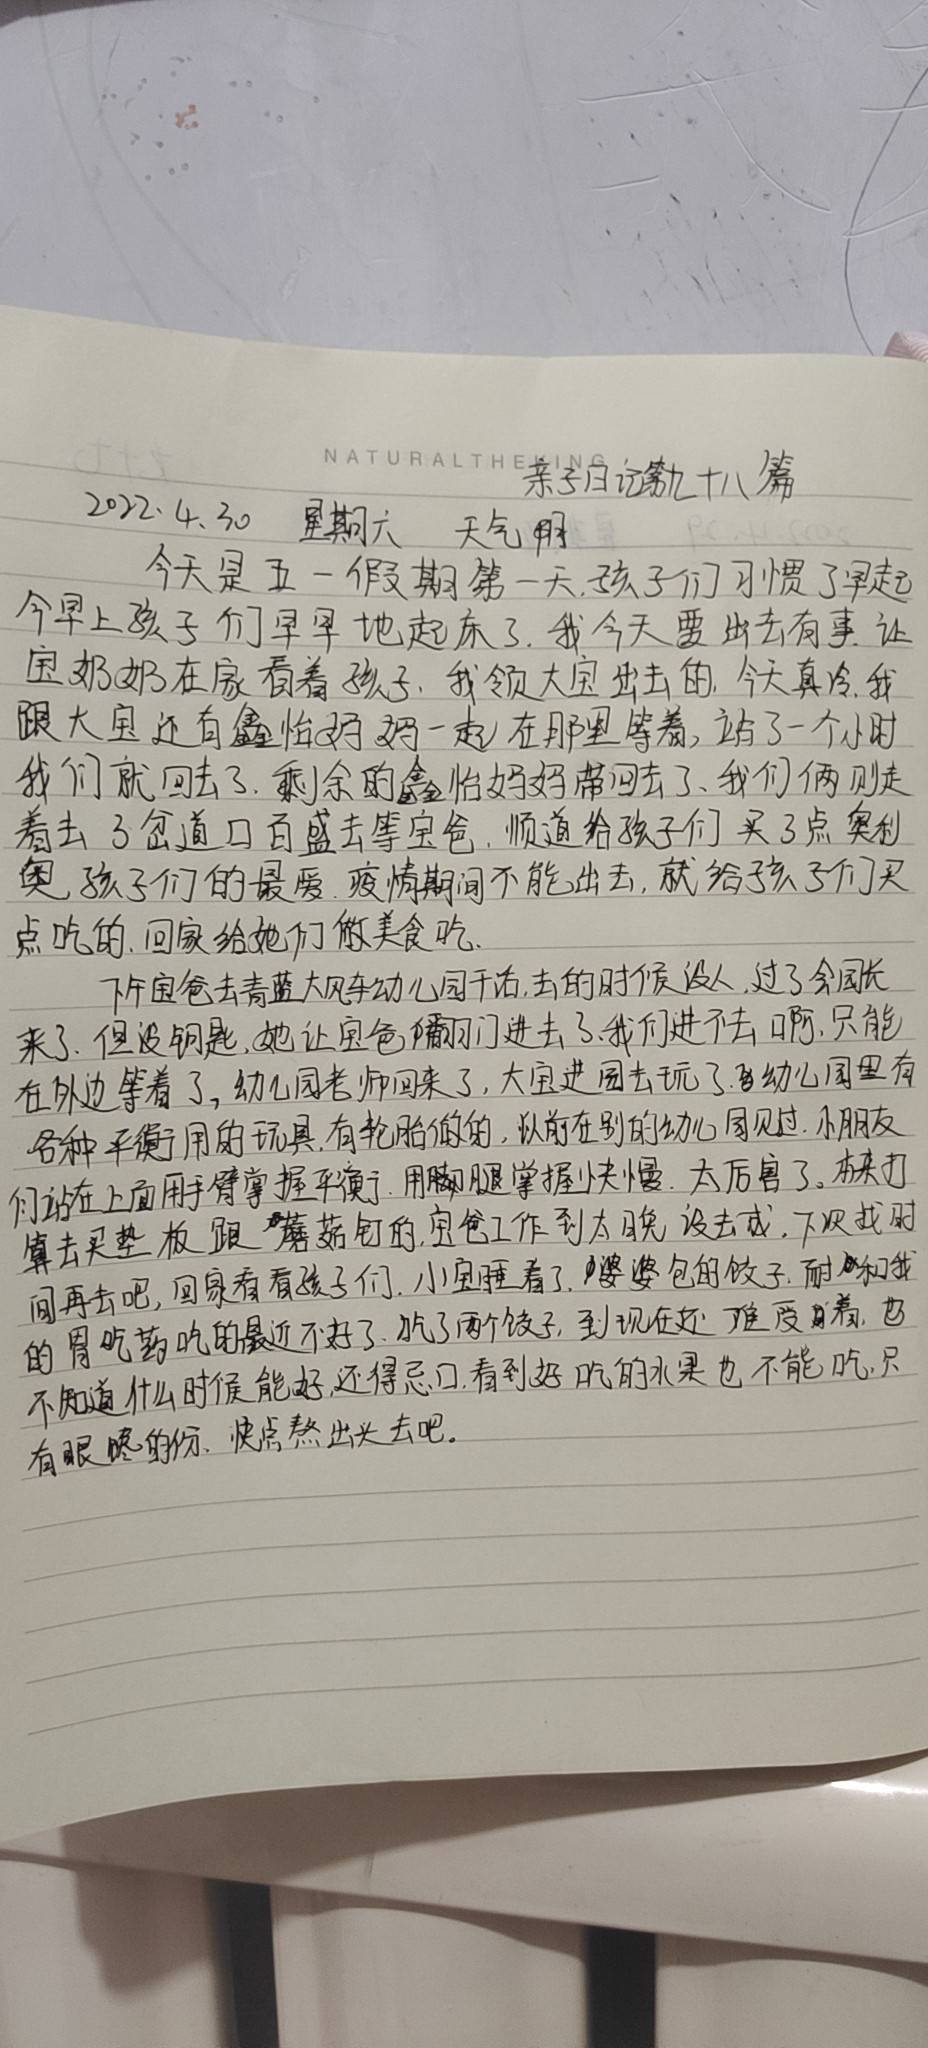 NATURALTHEKING
亲子日记第九十八篇
2022.4.30 星期六 天气 阴
今天是五一假期第一天.孩子们习惯了早起
今早上孩子们早早地起床了.我今天要出去有事.让
宝奶奶在家看着孩子.我领大宝出去的.今天真冷.我
跟大宝还有鑫怡妈妈一起在那里等着,站了一个小时
我们就回去了.剩余的鑫怡妈妈带回去了、我们俩则走
着去了岔道口百盛去等宝爸.顺道给孩子们买了点奥利
奥孩子们的最爱.疫情期间不能出去,就给孩子们买
点吃的.回家给她们做美食吃.
下午宝爸去青蓝大风车幼儿园干活.去的时候没人.过了会园长
来了.但没钥匙.她让宝爸翻门进去了.我们进不去啊.只能
在外边等着了,幼儿园老师回来了,大宝进园去玩了.幼儿园里有
各种平衡用的玩具.有轮胎做的,以前在别的幼儿园见过.小朋友
们站在上面用手臂掌握平衡.用腿掌握快慢.太厉害了。本来打
算去买垫板跟蘑菇钉的.宝爸工作到太晚没去成,下次找时
间再去吧,回家看看孩子们.小宝睡着了.婆婆包的饺子.耐和我
的胃吃药吃的最近不好了.吃了两个饺子,到现在还难受着.也
不知道什么时候能好.还得忌口.看到好吃的水果也不能吃.只
有眼馋的份.快点熬出头去吧。